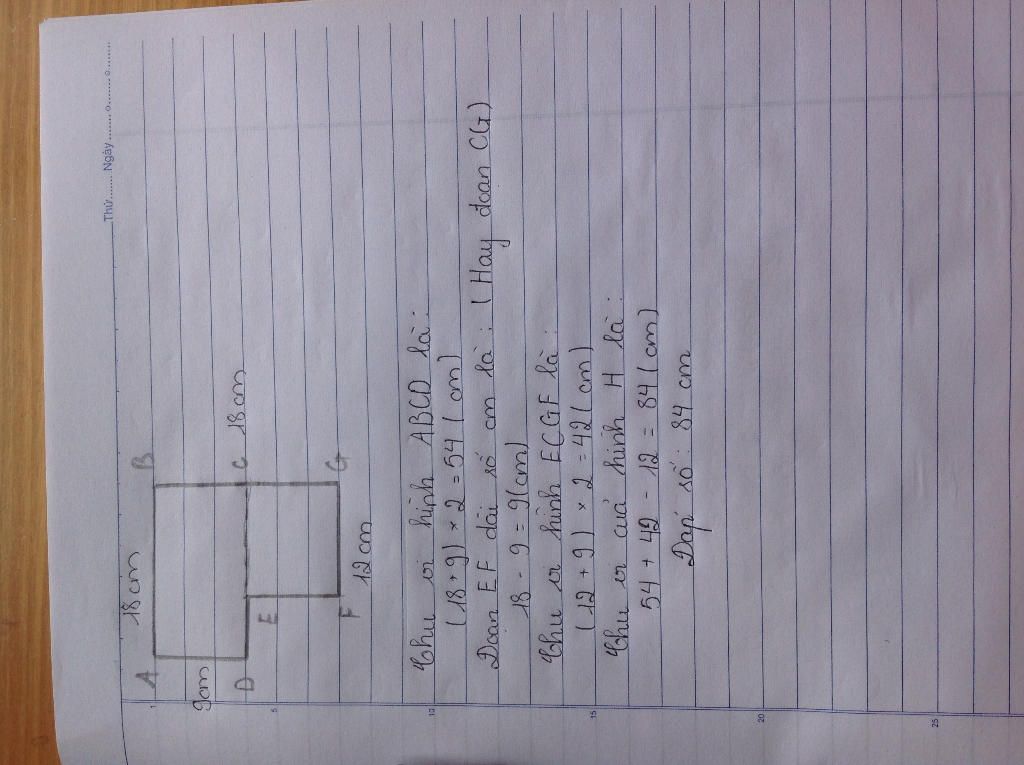 Thứ........ Ngày ........o........o........
18 cm
A
B
9cm
D
E
C
18 cm
F
G
12 cm
Chu vi hình ABCD là :
(18 + 9) × 2 = 54 (cm)
Đoạn EF dài số cm là : (Hay đoan CG)
18 - 9 = 9 (cm)
Chu vi hình ECGF là :
(12 + 9) × 2 = 42 (cm)
Chu vi cuả hình H là :
54 + 42 - 12 = 84 (cm)
Đáp số : 84 cm
1
5
10
15
20
25